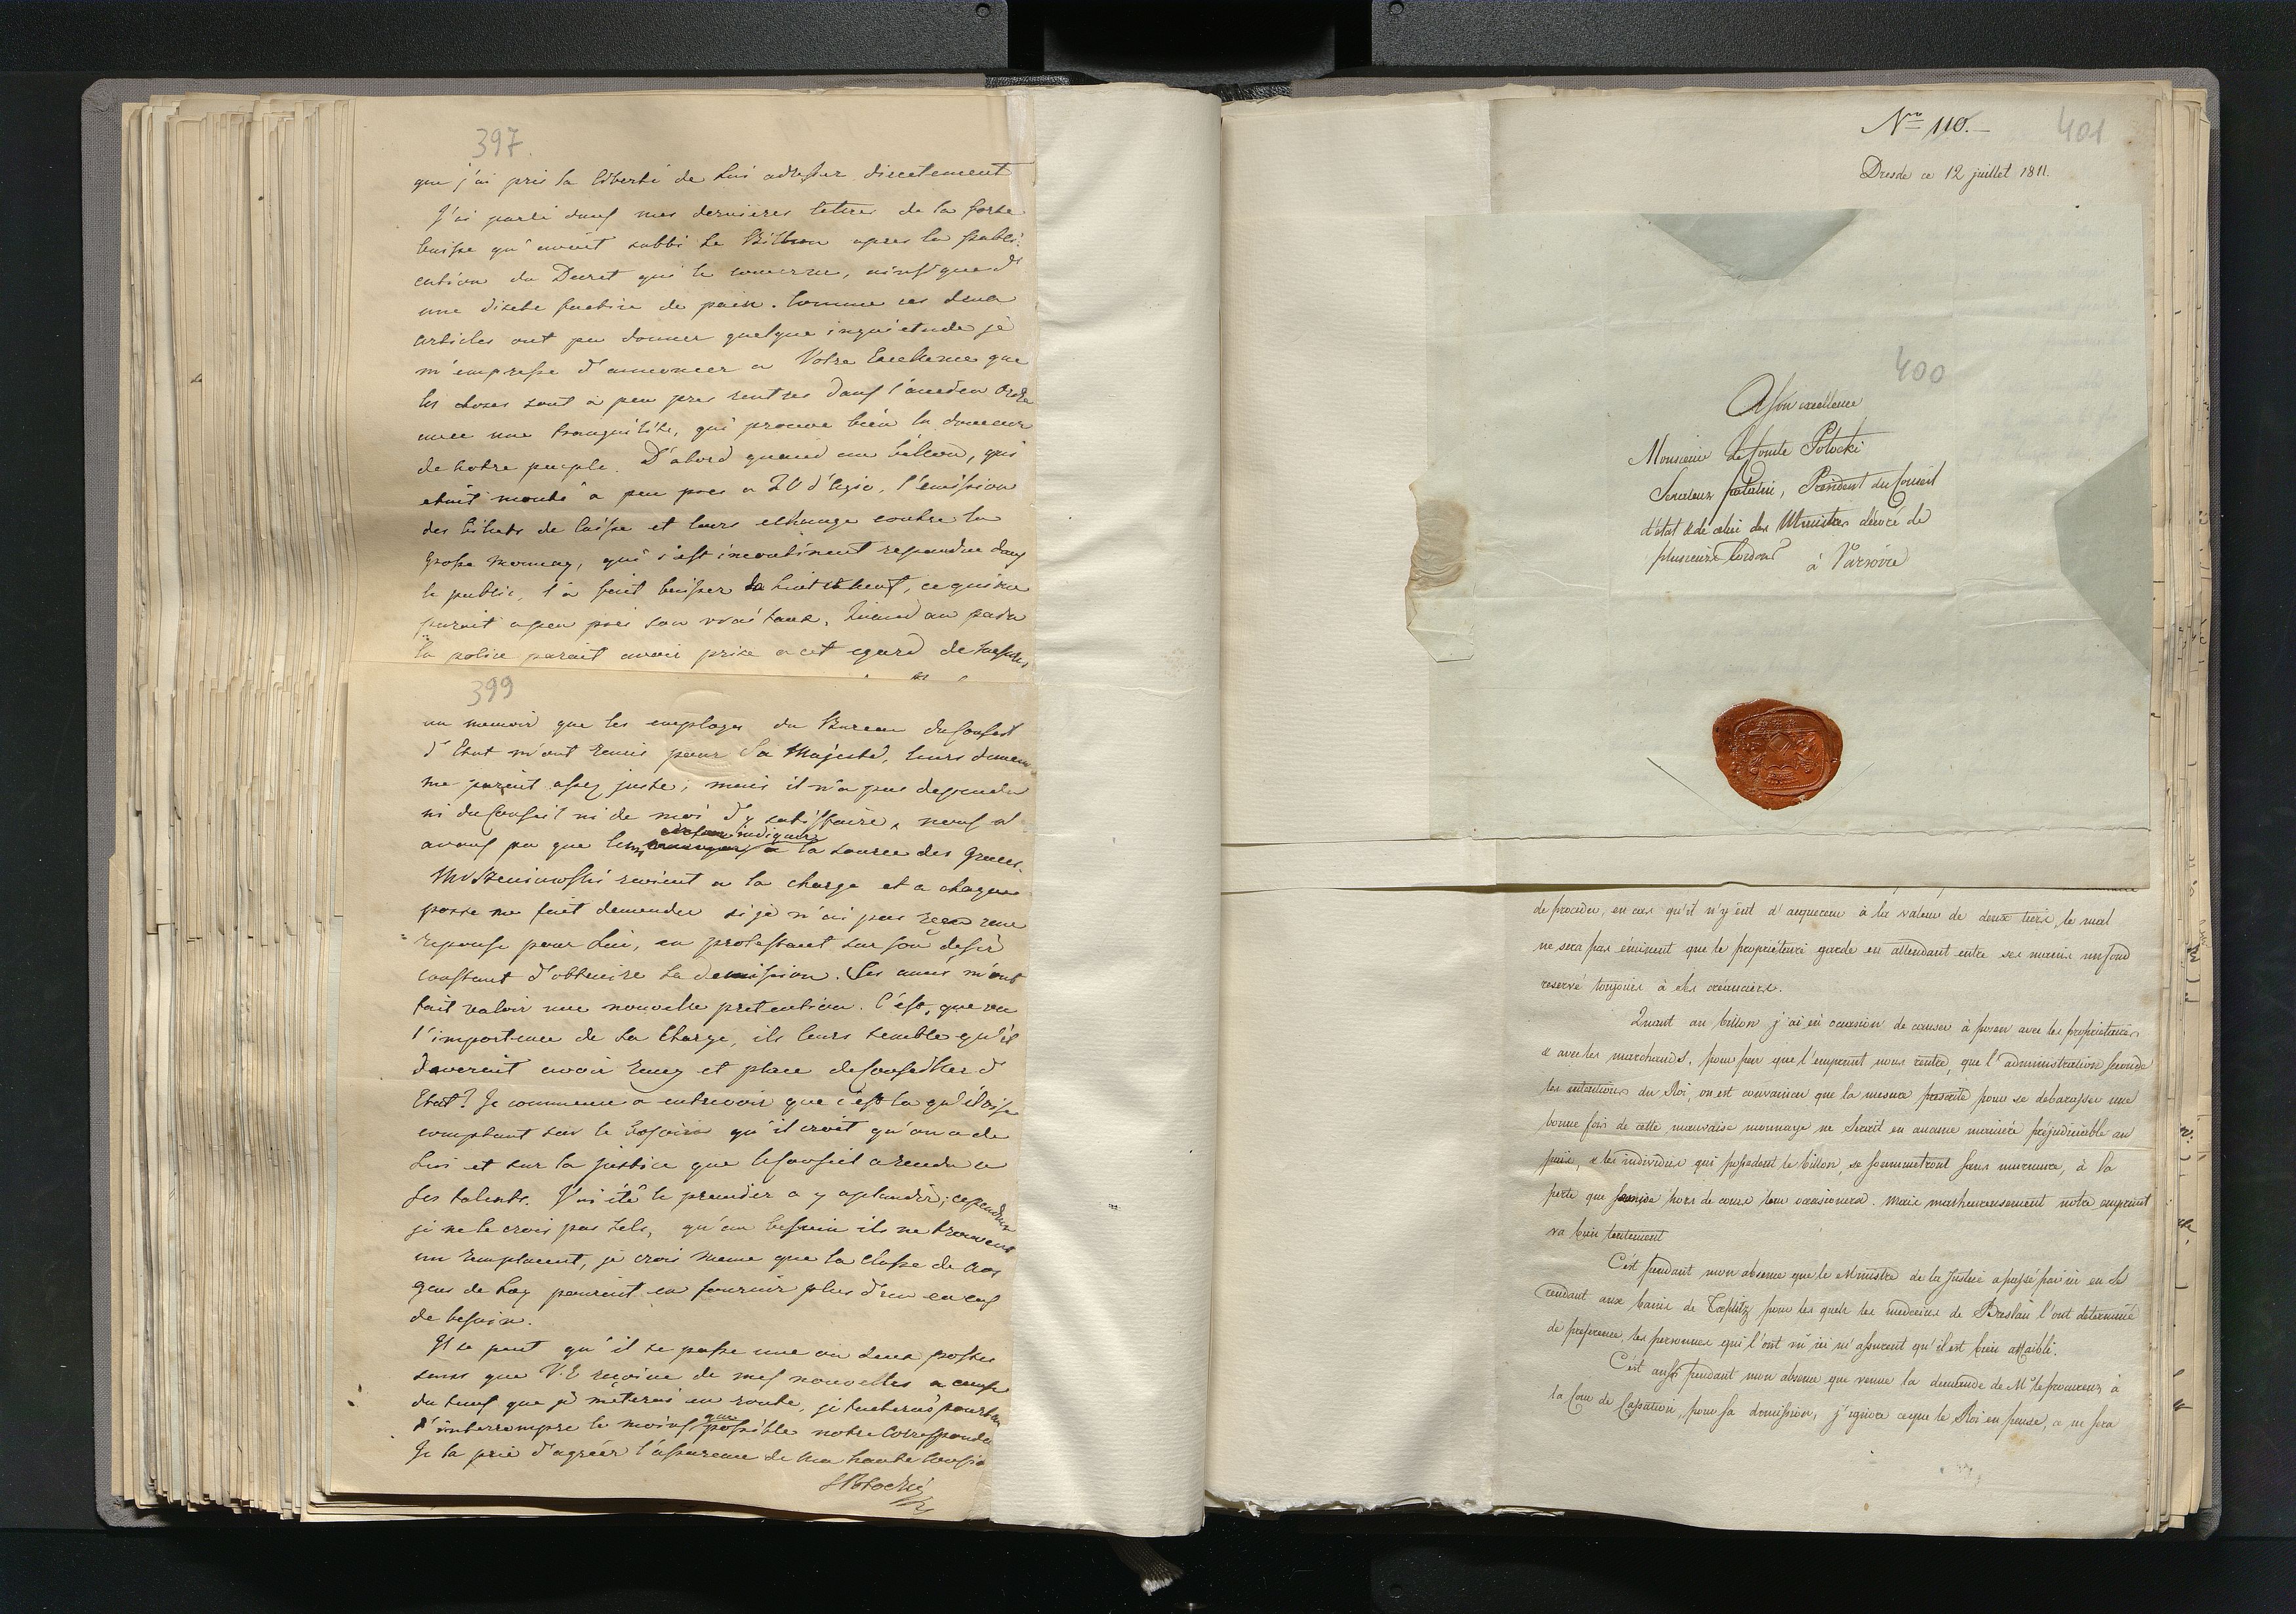 397.
que j'ai pris la liberté de Lui adresser directement
J'ai parlé dans mes dernieres lettres de la forte
baisse qu'avoit subbi le Billon apres la publi-
cation du Decret qui le concerne, ainsi que d'
une disete factice de pain. Comme ces deux
articles ont pu donner quelque inquietude je
m'empresse d'annoncer a Votre Excellence que
les choses sont a peu pres rentres dans l'ancien Ordre
avec une tranquilité, qui prouve bien la douceur
de notre peuple. D'abord quand au billon, qui
etoit monté a peu pres a 20 d'Agio, l'emission
des billets de Caisse et leurs echange contre la
grosse monnay, qui s'est incontinent repandue dans
le public, l'a fait baisser a huit et neuf, ce qui me
paroit a peu près son vrai taux. Quand au pain
la police parait avoir prise a cet egard de mesures
399
un memoir que les employes du Bureau du Conseil
d'Etat m'ont remis pour Sa Majesté, leurs deman
me paroit assez juste; mais il n'a pas dependu
ni du Conseil ni de moi d'y satisfaire, nous n'
avons pu que leur indiquer la source des graces.
Mr revient a la charge et a chaque
poste me fait demander si je n'ai pas recu une
reponse pour Lui, en protestant sur son desir
constant d'obtenire sa demission. Ses amis m'ont
fait valoir une nouvelle pretention. C'est, que vu
l'importence de sa Charge, ils leurs semble qu'il
deveroit avoir rang et place de Conseiller d'
Etat? Je commence a entrevoir que c'est la qu'il vise
comptant sur le besoin qu'il croit qu'on a de
Lui et sur la justice que le Conseil a rendu a
ses talents. J'ai été le premier a y aplaudir; cependant
je ne le crois pas tels, qu'au besoin ils ne trouvent
un remplacent, je crois meme que la Classe de nos
gens de Loy pouroit en fournir plus d'un en cas
de besoin.
Il se peut qu'il se passe une ou deux postes
sans que V.E reçoive de mes nouvelles a cause
du tems que je méterai en route, je tacherai pourtant
d'interrompre le moins que possible notre Corresponda
Je la prie d'agréer l'assurence de ma haute Consid
SPotocki
Nro 110.
401
Dresde ce 12 juillet 1811.
400
A Son excellence
Monsieur le Comte Potocki
Senateur palatin, President du Conseil
d'état & de celui des Ministres décoré de
plusieurs Cordons à Varsovie
de proceder, en cas qu'il n'y eut d'acquereur à la valeur de deux tiers, le mal
ne sera pas éminent que le proprietaire garde en attendant entre ses mains un fond
reservé toujours à ses créanciers.
Quant au billon j'ai eû occasion de causer à posen avec les proprietaires
& avec les marchands, pour peu que l'emprunt nous rentre, que l'administration seconde
les intentions du Roi, on est convaincu que la mesure prescrite pour se debarasser une
bonne fois de cette mauvaise monnaye ne serait en aucune maniere préjudiciable au
païs, & les individus qui possedent le billon, se soummetront sans murmure, à la
perte que hors de cours leur occasionera. Mais malheureusement notre emprunt
va bien lentement
C'est pendant mon absence que le Ministre de la Justice a passé par ici en se
rendant aux bains de Toeplitz pour les quels les medecins de Breslau l'ont determiné
de preference, les personnes qui l'ont vû ici m'assurent qu'il est bien affaibli.
C'est aussi pendant mon absence que venue la demande de Mr le procureur à
la Cour de Cassation, pour sa demission, j'ignore ce que le Roi en pense, ce ne sera